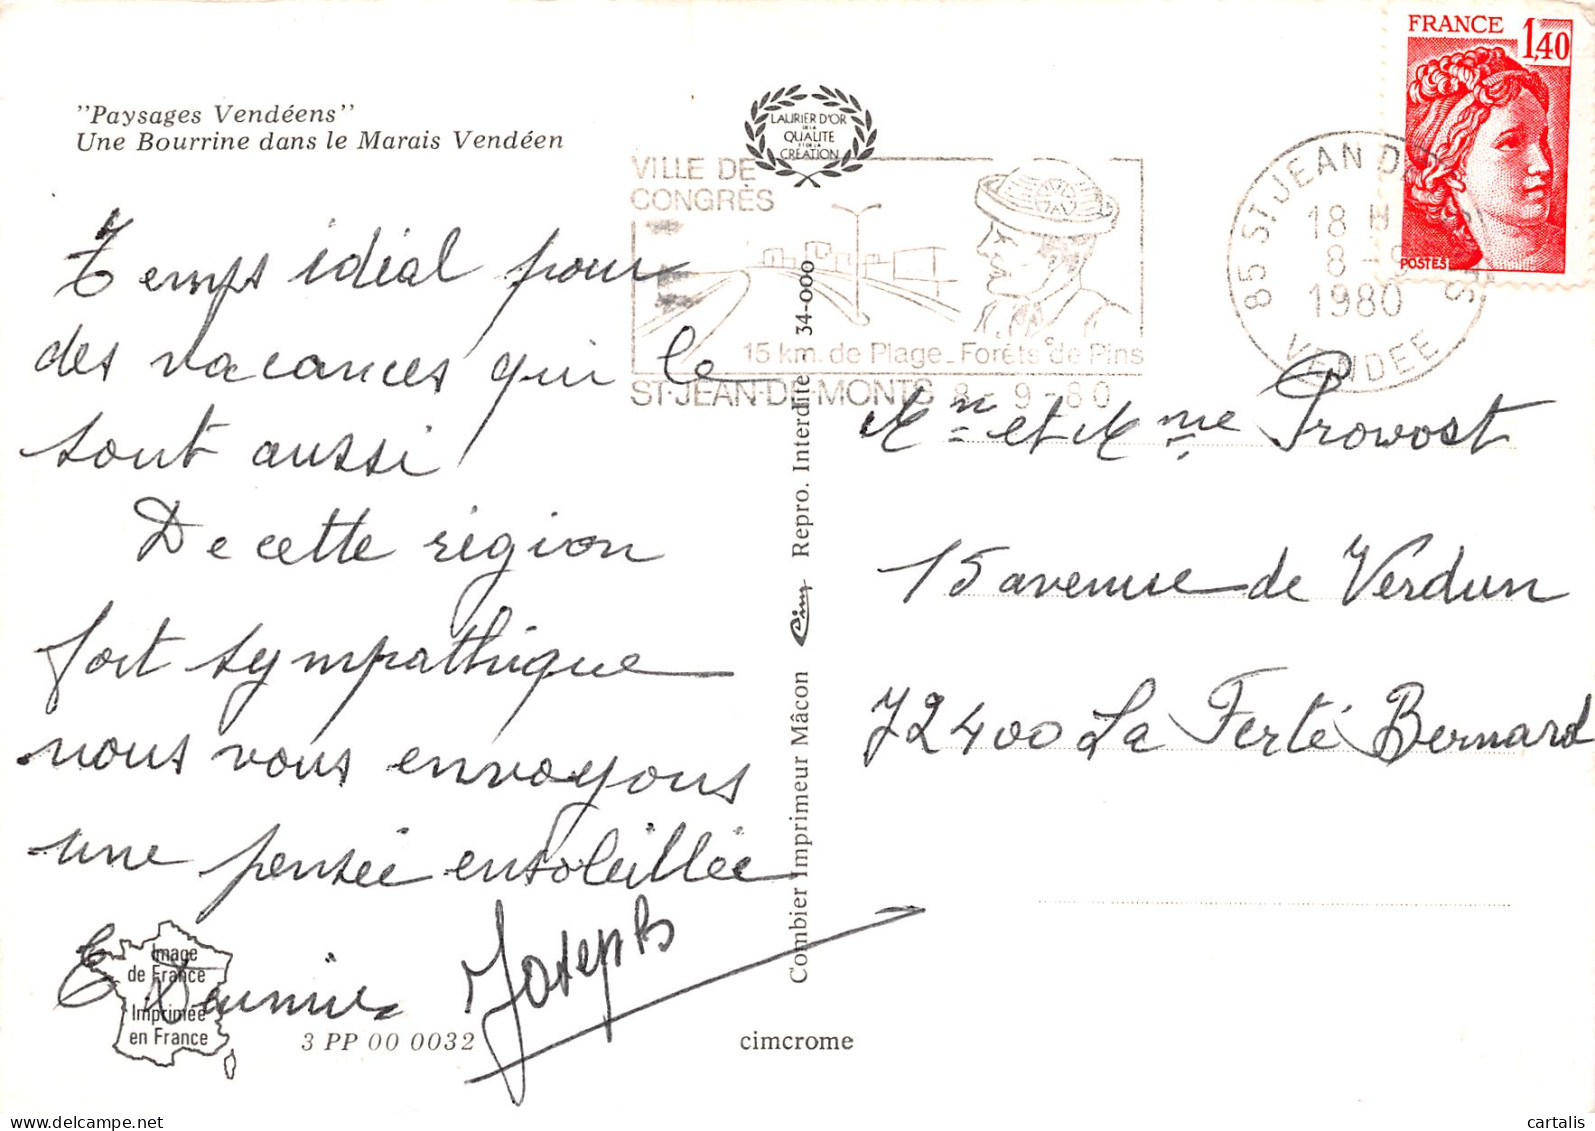 "Paysages Vendéens"
Une Bourrine dans le Marais Vendéen
LAURIER D'OR
DE LA
QUALITE
ET DE LA
CREATION
VILLE DE
CONGRÈS
15 km. de Plage - Forêts de Pins
ST-JEAN-DE-MONTS 8 - 9 - 80
85 ST JEAN DE
18 H
8 - 9
1980
VENDEE
FRANCE
1,40
POSTES
Temps idial pour
des vacances qui le
sont aussi
De cette région
fort sympathique
nous vous envoyons
une pensée ensoleillée
Joseph
Mr et Mme Provost
15 avenue de Verdun
72400 La Ferté Bernard
Combier Imprimeur Mâcon Cim Repro. Interdite 34-000
Image
de France
Imprimée
en France
3 PP 00 0032
cimcrome
www.delcampe.net
cartalis